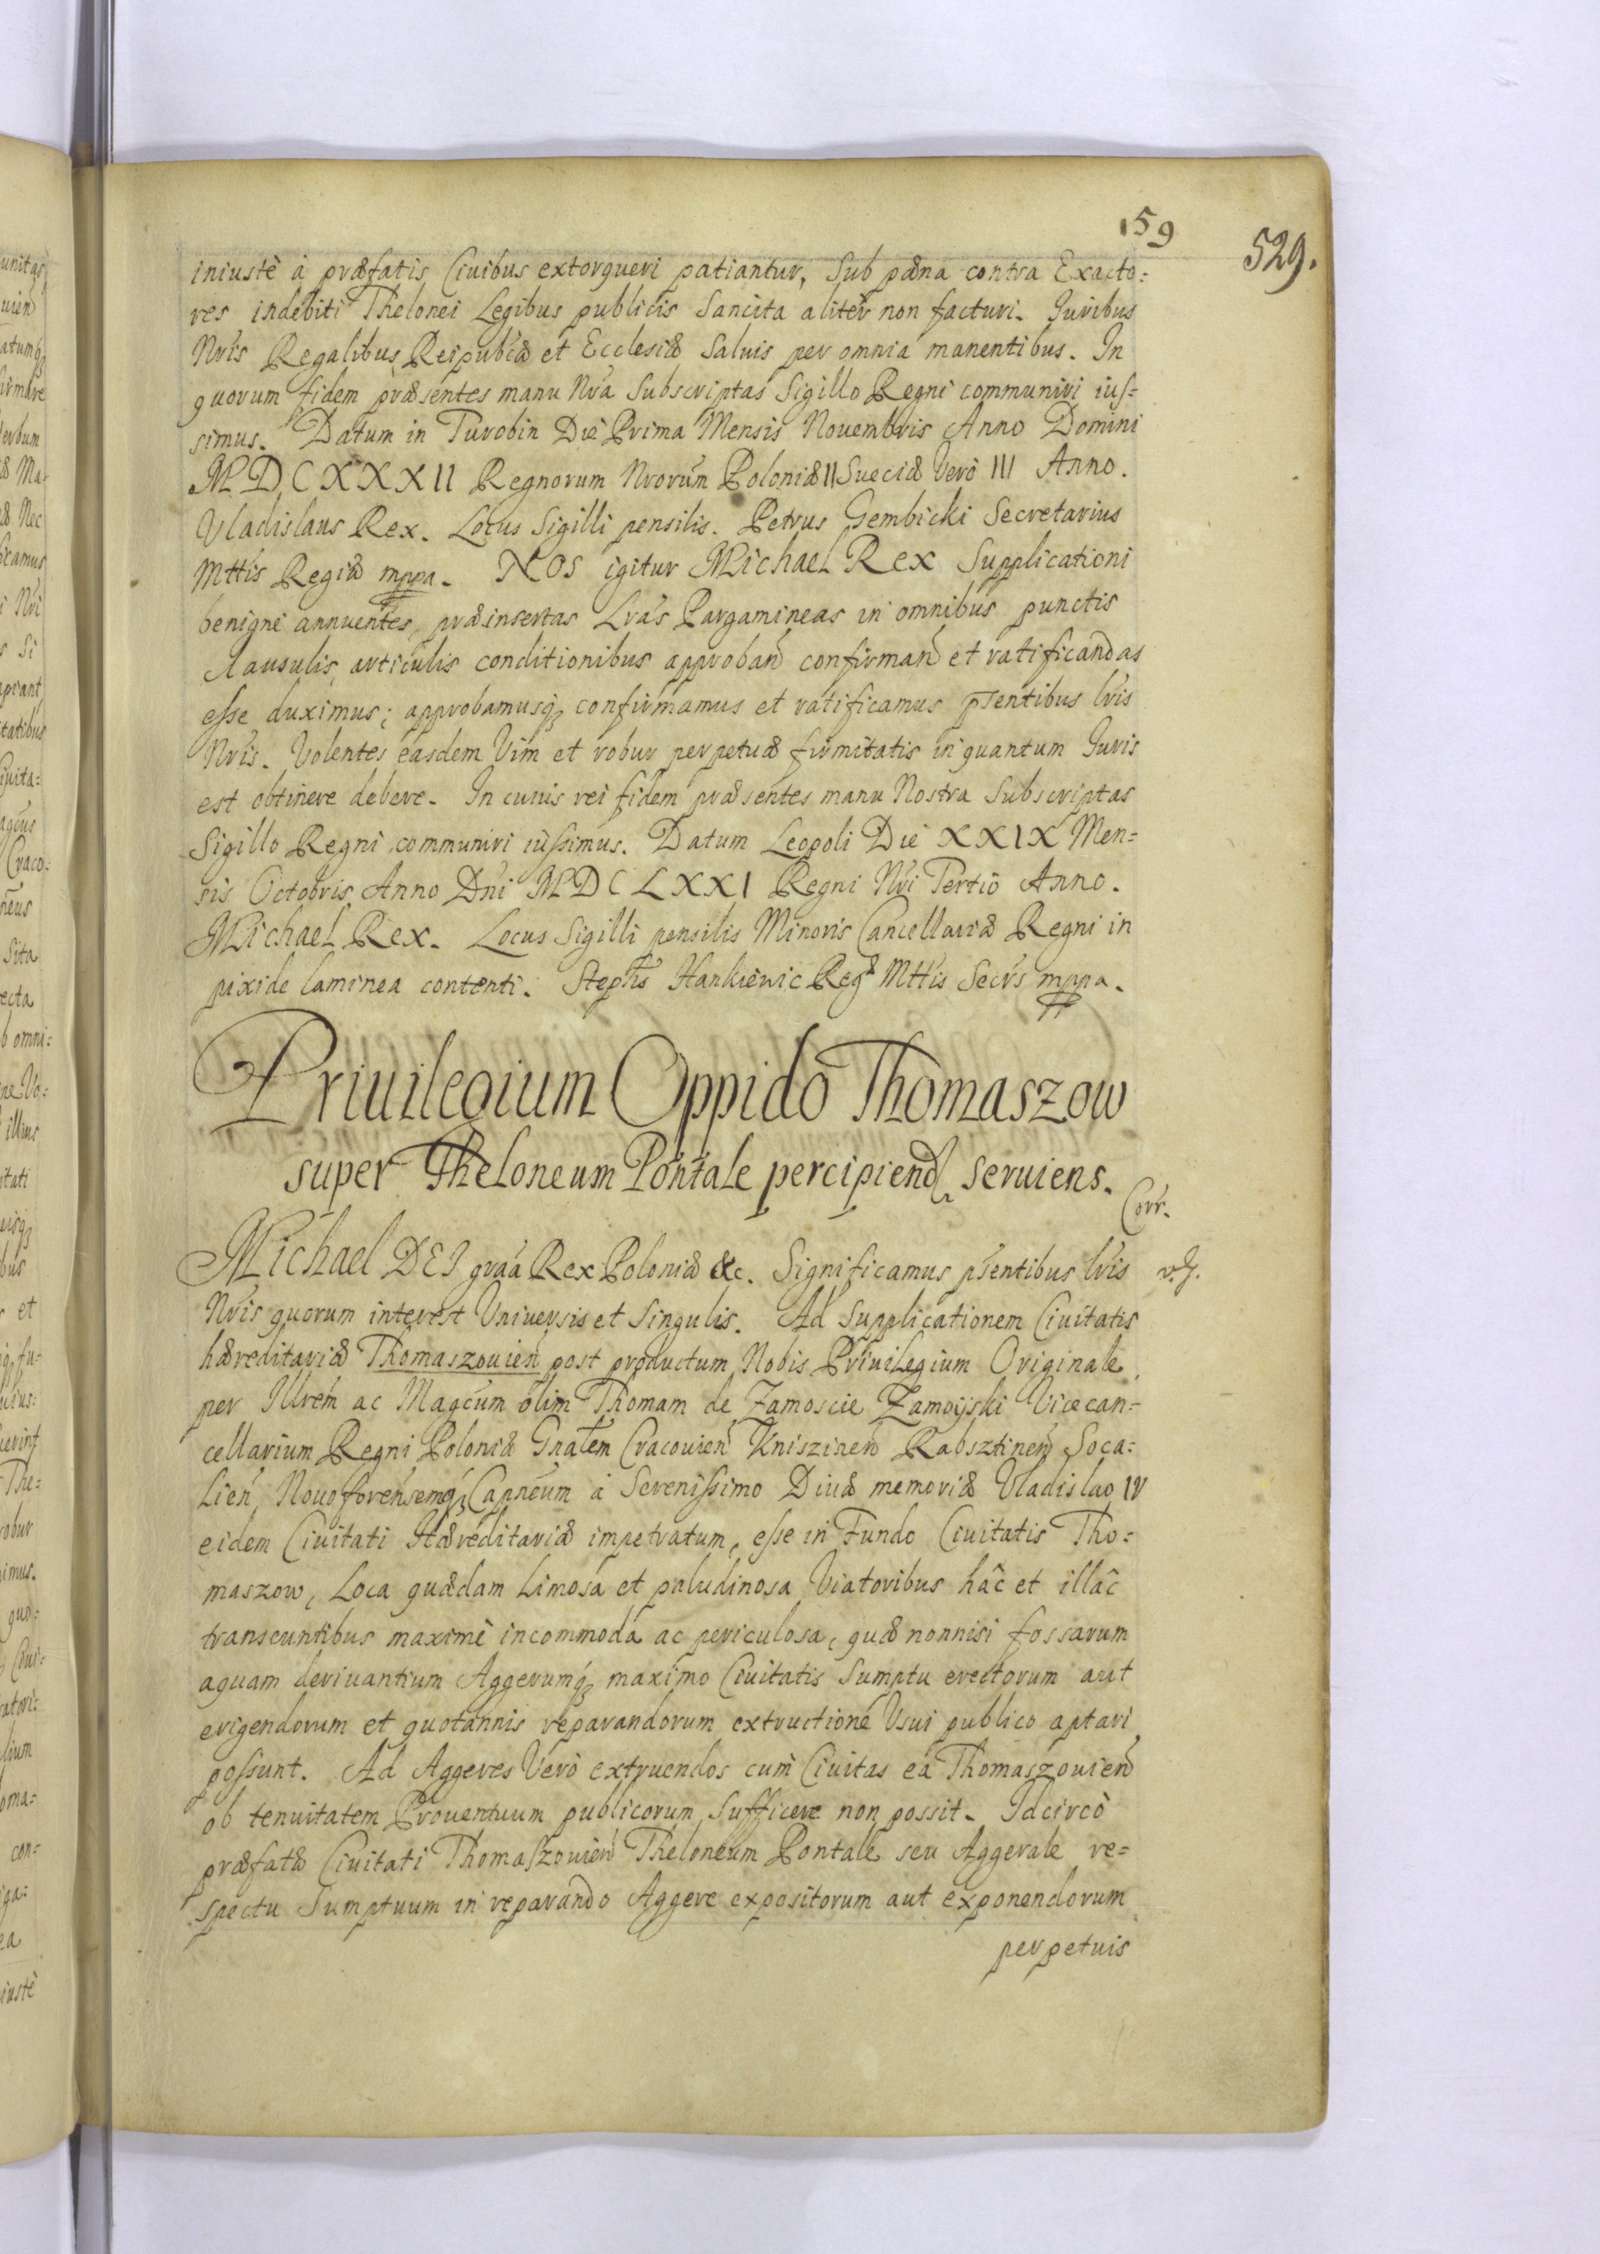 159
529.
iniustè à præfatis Ciuibus extorqueri patiantur, Sub pæna contra Exacto:
res indebiti Thelonei Legibus publicis Sancita aliter non facturi. Iuribus
Nrīs Regalibus Reipubcæ et Ecclesiæ Saluis per omnia manentibus. In
quorum fidem præsentes manu Nrā Subscriptas Sigillo Regni communiri ius-
simus. Datum in Turobin Die Prima Mensis Nouembris Anno Domini
MDCXXXII Regnorum Nrorum Poloniæ II Sueciæ Verò III Anno.
Vladislaus Rex. Locus Sigilli pensilis. Petrus Gembicki Secretarius
Mttis Regiæ mppa. NOS igitur Michael Rex Supplicationi
benigne annuentes, præinsertas Lrās Pargamineas in omnibus punctis
Clausulis, articulis conditionibus approband confirmand et ratificandas
esse duximus; approbamusq3 confirmamus et ratificamus pſentibus lrīs
Nrīs. Volentes easdem Vim et robur perpetuæ firmitatis in quantum Iuris
est obtinere debere. In cuius rei fidem præsentes manu Nostra Subscriptas
Sigillo Regni communiri iussimus. Datum Leopoli Die XXIX Men-
sis Octobris Anno Dni MDCLXXI Regni Nri Tertiò Anno.
Michael Rex. Locus Sigilli pensilis Minoris Cancellariæ Regni in
pixide laminea contenti. Stephs Hankiewic Regæ Mttis Secrs mppa.
Priuilegium Oppido Thomaszow
super Theloneum Pontale percipiend seruiens.
Corr.
Michael DEI graā Rex Poloniæ &c. Significamus pſentibus lrīs
Nrīs quorum interest Vniuersis et Singulis. Ad Supplicationem Ciuitatis
hæreditariæ Thomaszouien post productum Nobis Priuilegium Originale,
per Illrem ac Magcum olim Thomam de Zamoscie Zamoyski Vicecan-
cellarium Regni Poloniæ Gnalem Cracouien Kniszinen Rabsztinen Soca-
lien, Nouoforensemq3 Capneum à Serenissimo Diuæ memoriæ Vladislao IV
eidem Ciuitati Hæreditariæ impetratum, esse in Fundo Ciuitatis Tho-
maszow, Loca quædam Limosa et paludinosa Viatoribus hâc et illâc
transeuntibus maximè incommoda ac periculosa, quæ nonnisi fossarum
aquam deriuantium Aggerumq3 maximo Ciuitatis Sumptu erectorum aut
erigendorum et quotannis reparandorum extructione Vsui publico aptari
possunt. Ad Aggeres Verò extruendos cum Ciuitas ea Thomaszouien
ob tenuitatem Prouentuum publicorum Sufficere non possit. Idcircò
præfatæ Ciuitati Thomaszouien Theloneum Pontale seu Aggerale re-
spectu Sumptuum in reparando Aggere expositorum aut exponendorum
perpetuis